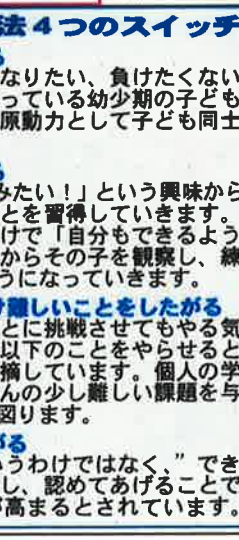 法4つのスイッチ
る
なりたい、負けたくない
っている幼少期の子ども
原動力として子ども同士
る
みたい！」という興味から
とを習得していきます。
けで「自分もできるよう
からその子を観察し、練
うになっていきます。
け難しいことをしたがる
とに挑戦させてもやる気
以下のことをやらせると
摘しています。個人の学
んの少し難しい課題を与
図ります。
がる
うわけではなく、”でき
し、認めてあげることで
が高まるとされています。